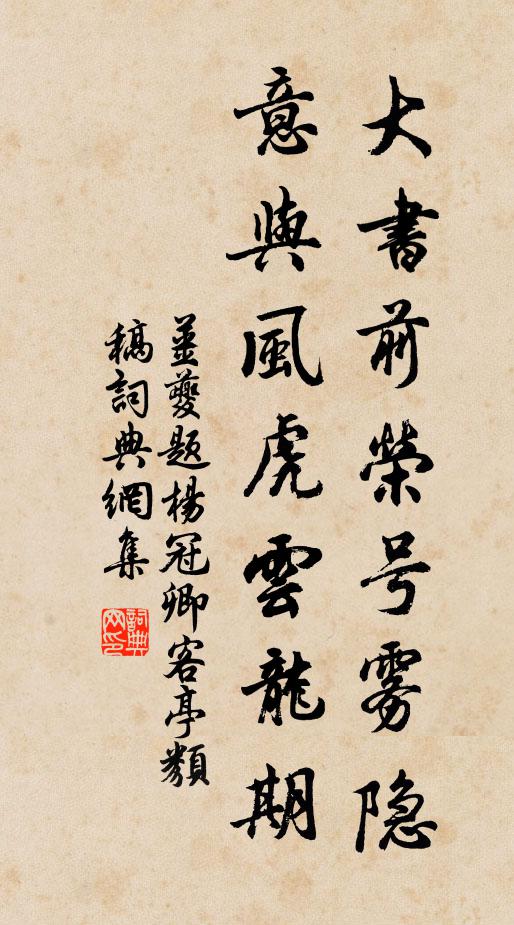 大書前榮号雾隐
意與風虎雲龍期
姜夔题楊冠卿客亭類
稿詞典網集
詞典网印